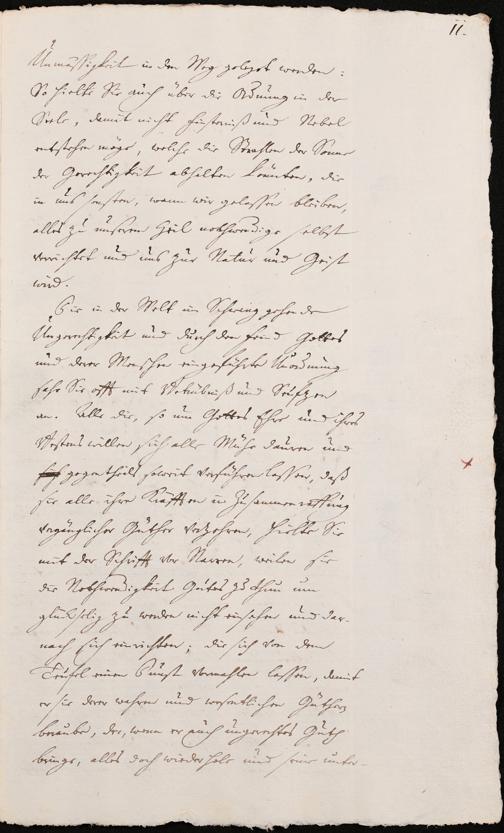 11.
Unmässigkeit in den Weg geleget werden:
So hielte Sie auch über die Ordnung in der
Seele, damit nicht Finsterniß und Nebel
entstehen möge, welche die Strahlen der Sonne
der Gerechtigkeit abhalten könnten, die
in uns, wann wir gelassen bleiben,
alles zu unserem Heil nothwendige selbst
verrichtet und uns zur Natur und Geist
wird.
Die in der Welt im Schwang gehende
Ungerechtigkeit und durch den Feind Gottes
und derer Menschen eingeführte Unordnung
sahe Sie offt mit Betrübniß und Seufzen
an. Alle die, so um Gottes Ehre und ihres
Bestens willen sich alle Mühe dauren und
gegentheils soweit verführen lassen, daß
sie alle ihre Kräfften in Zusammenraffung
vergänglicher Güther verzehren, hielte Sie
mit der Schrifft vor Narren, weilen sie
die Nothwendigkeit Gutes zu thun um
glückselig zu werden nicht einsehen und dar-
nach sich einrichten; die sich von dem
Teufel einen Dunst vormahlen lassen, damit
er sie derer wahren und wesentlichen Güther
beraube, der, wenn er auch ungerechtes Guth
bringe, alles doch wiederhole und seine unter-